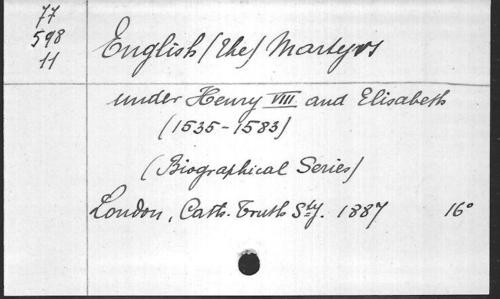 77
598
11
English (the) Martyrs
under Henry VIII and Elisabeth
(1535-1583)
(Biographical Series)
London, Cath. Truth Sty. 1887 16°